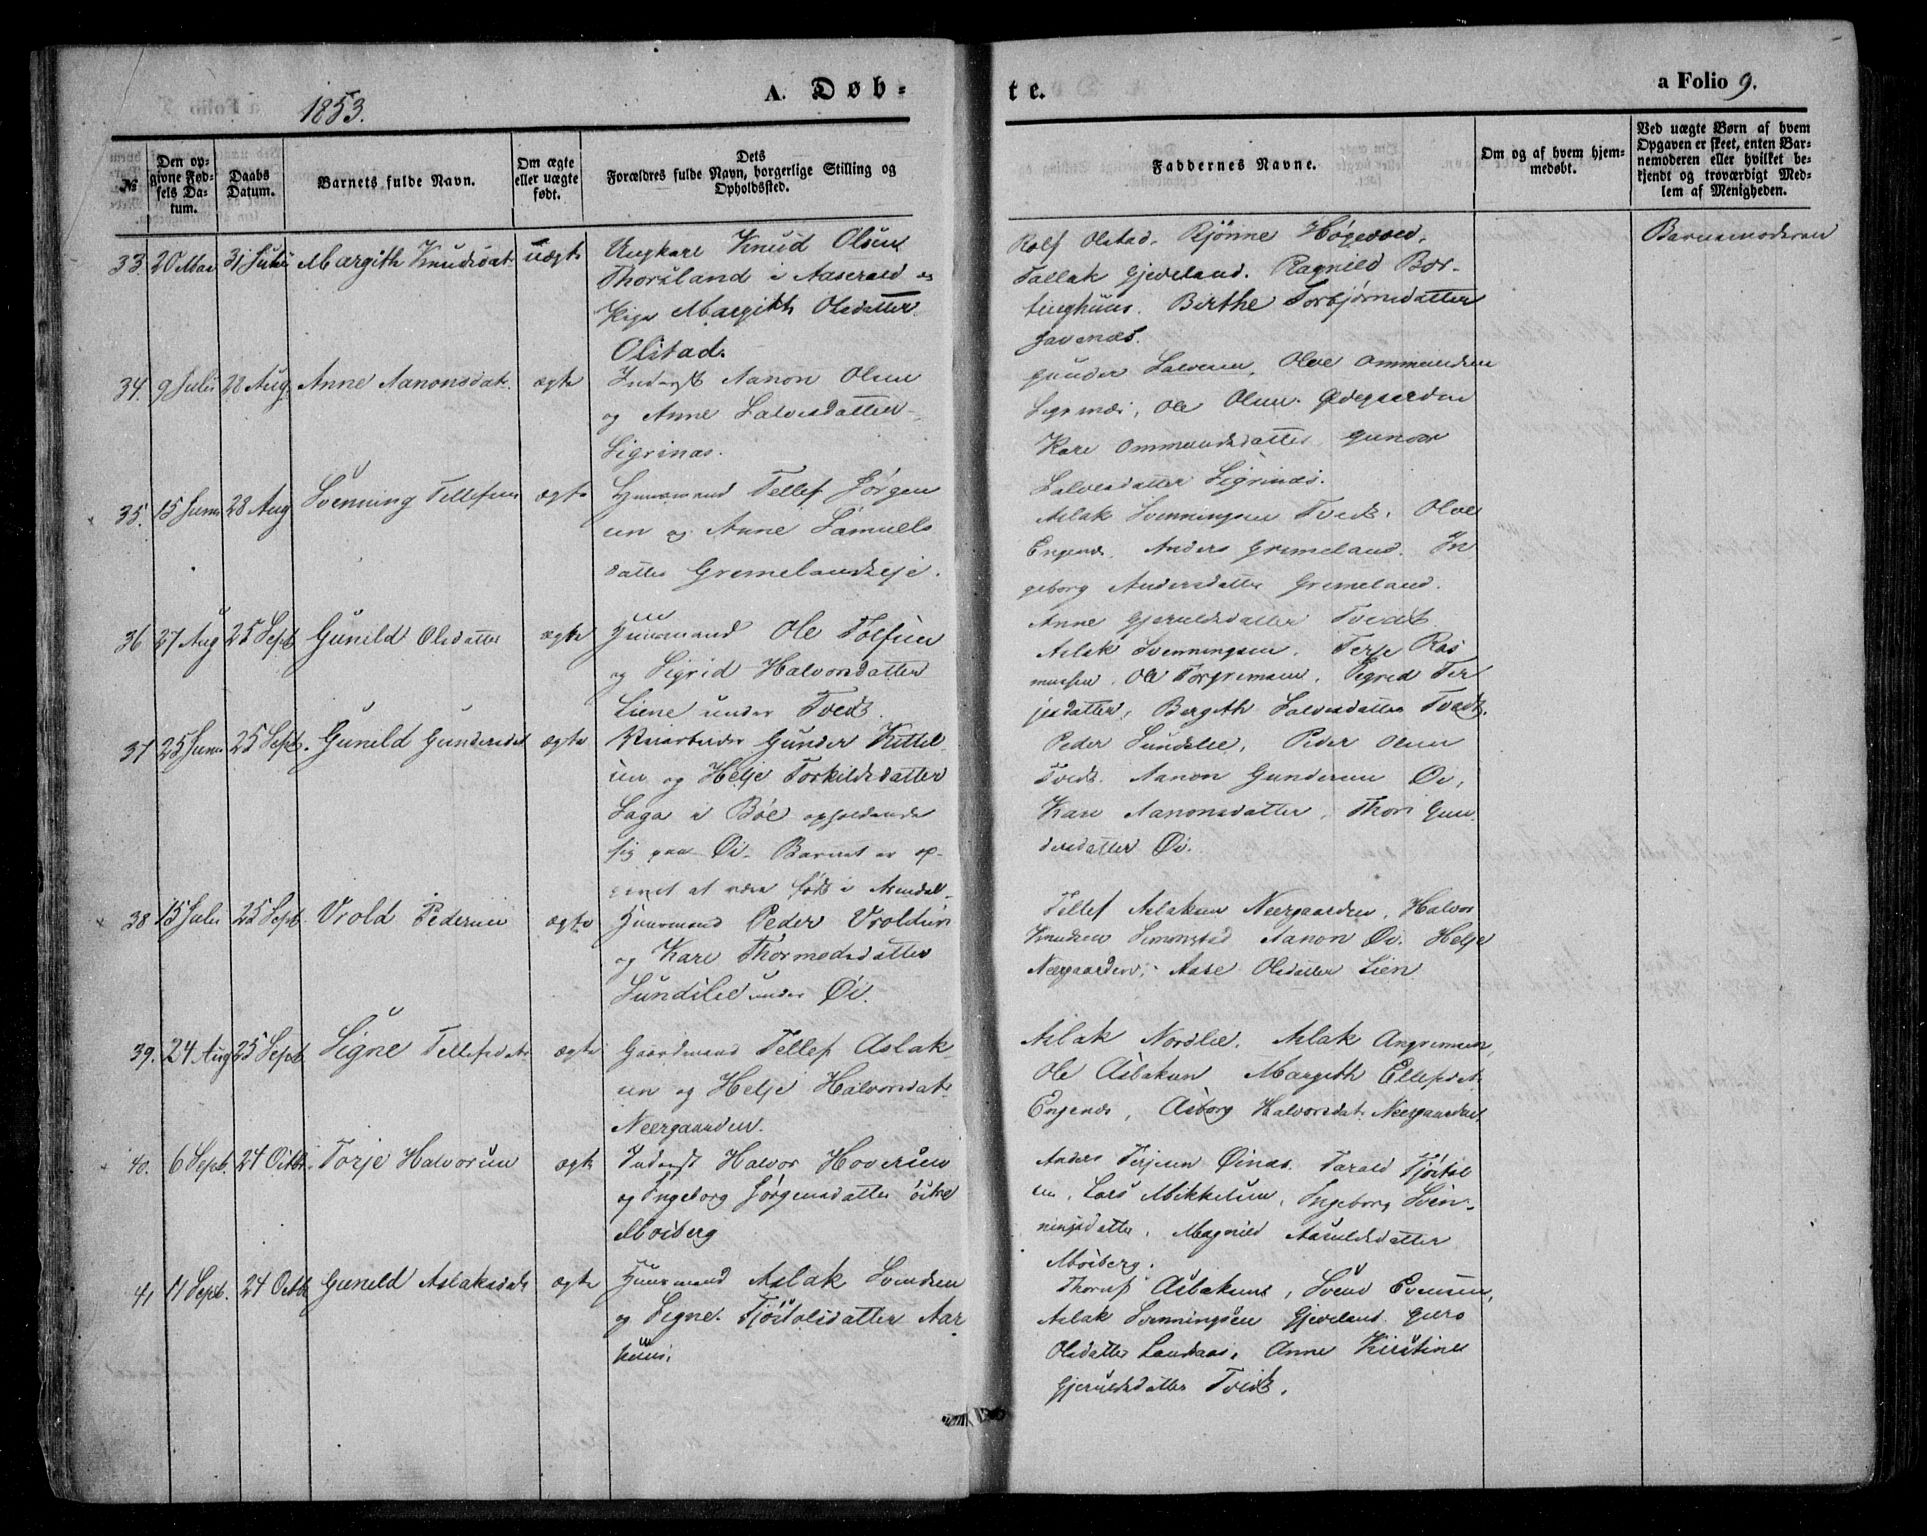 1853.
A. Døb-
te.
a Folio 9.
№
Den op-
givne Fød-
sels Da-
tum.
Daabs
Datum.
Barnets fulde Navn.
Om ægte
eller uægte
født.
Dets
Forældres fulde Navn, borgerlige Stilling og
Opholdssted.
Faddernes Navne.
Om og af hvem hjem-
medøbt.
Ved uægte Børn af hvem
Opgaven er skeet, enten Bar-
nemoderen eller hvilket be-
kjendt og troværdigt Med-
lem af Menigheden.
33. 20 Mai 31 Juli Margith Knudsdat. uægte
Ungkarl Knud Olsen
Thorsland i Aaserald og
Pige Margith Olsdatter
Olstad.
Rolf Olstad. Gjønne Høgevold.
Tallak Gjeveland. Ragnild Bør-
tinghuus. Birthe Torbjørnsdatter
Havenæs.
Barnemoderen
34. 9 Juli 28 Aug. Anne Aanonsdat. ægte
Inderst Aanon Olsen
og Anne Salvesdatter
Sigrinæs.
Gunder Salvesen, Olve Ommundsen
Sigrinæs, Ole Olsen Ødegaarden
Kare Ommundsdatter Gunvor
Salvesdatter Sigrinæs.
35. 15 Juni 28 Aug Svenning Tellefsen ægte
Huusmand Tellef Jørgen
sen og Anne Samuels
datter Gremelandseje.
Aslak Svenningsen Tvedt. Olve
Engenæs. Anders Gremeland. In
geborg Andersdatter Gremeland.
Anne Gjeruldsdatter Tvedt
36 27 Aug 25 Sept. Gunild Olsdatter ægte
Huusmand Ole Tolfsen
og Sigrid Halvorsdatter
Liene under Tvedt.
Aslak Svenningsen. Terje Ras
mussen. Ole Torgremsen. Sigrid Ter
jesdatter, Bergith Salvesdatter Tvedt.
37 25 Juni 25 Sept. Gunild Gundersdat ægte
Gunder Kittel
sen og Helje Torkildsdatter
Laga i Bøe opholdende
sig paa Øi. Barnet er op-
givet at være født i Arendal.
Peder Sundslie, Peder Olsen
Tvedt. Aanon Gundersen Øi,
Kare Aanonsdatter, Thor Gun
dersdatter Øi.
38 15 Juli 25 Sept. Vrold Pedersen ægte
Huusmand Peder Vroldsen
og Kare Thormodsdatter
Sundslie under Øi.
Tellef Aslaksen Neergaarden. Halvor
Knudsen Simonstad Aanon Øi. Helje
Neergaarden. Aase Olsdatter Lien
39. 24 Aug 25 Sept Signe Tellefsdat. ægte
Gaardmand Tellef Aslak
sen og Helje Halvorsdat.
Neergaarden.
Aslak Nordlie. Aslak Angrimsen,
Ole Aslaksen Margith Ellefsdat.
Engenæs, Asborg Halvorsdat. Neergaarden.
40. 6 Sept. 24 Octbr. Torje Halvorsen ægte
Inderst Halvor Hoversen
og Ingeborg Jørgensdatter
Moiberg
Anders Terjesen Øinæs. Tarald Tjøstol
sen, Lars Mikkelsen, Ingeborg Sven-
ningsdatter, Magnild Aasuldsdatter
Moiberg.
41 11 Sept. 24 Octbr Gunild Aslaksdat. ægte
Huusmand Aslak Svendsen
og Signe Tjøstolsdatter Aar
huus.
Aslaksen, Svend Evensen,
Aslak Svenningsen Gjeveland. Guro
Olsdatter Landaas, Anne Kirstine
Gjeruldsdatter Tvedt.